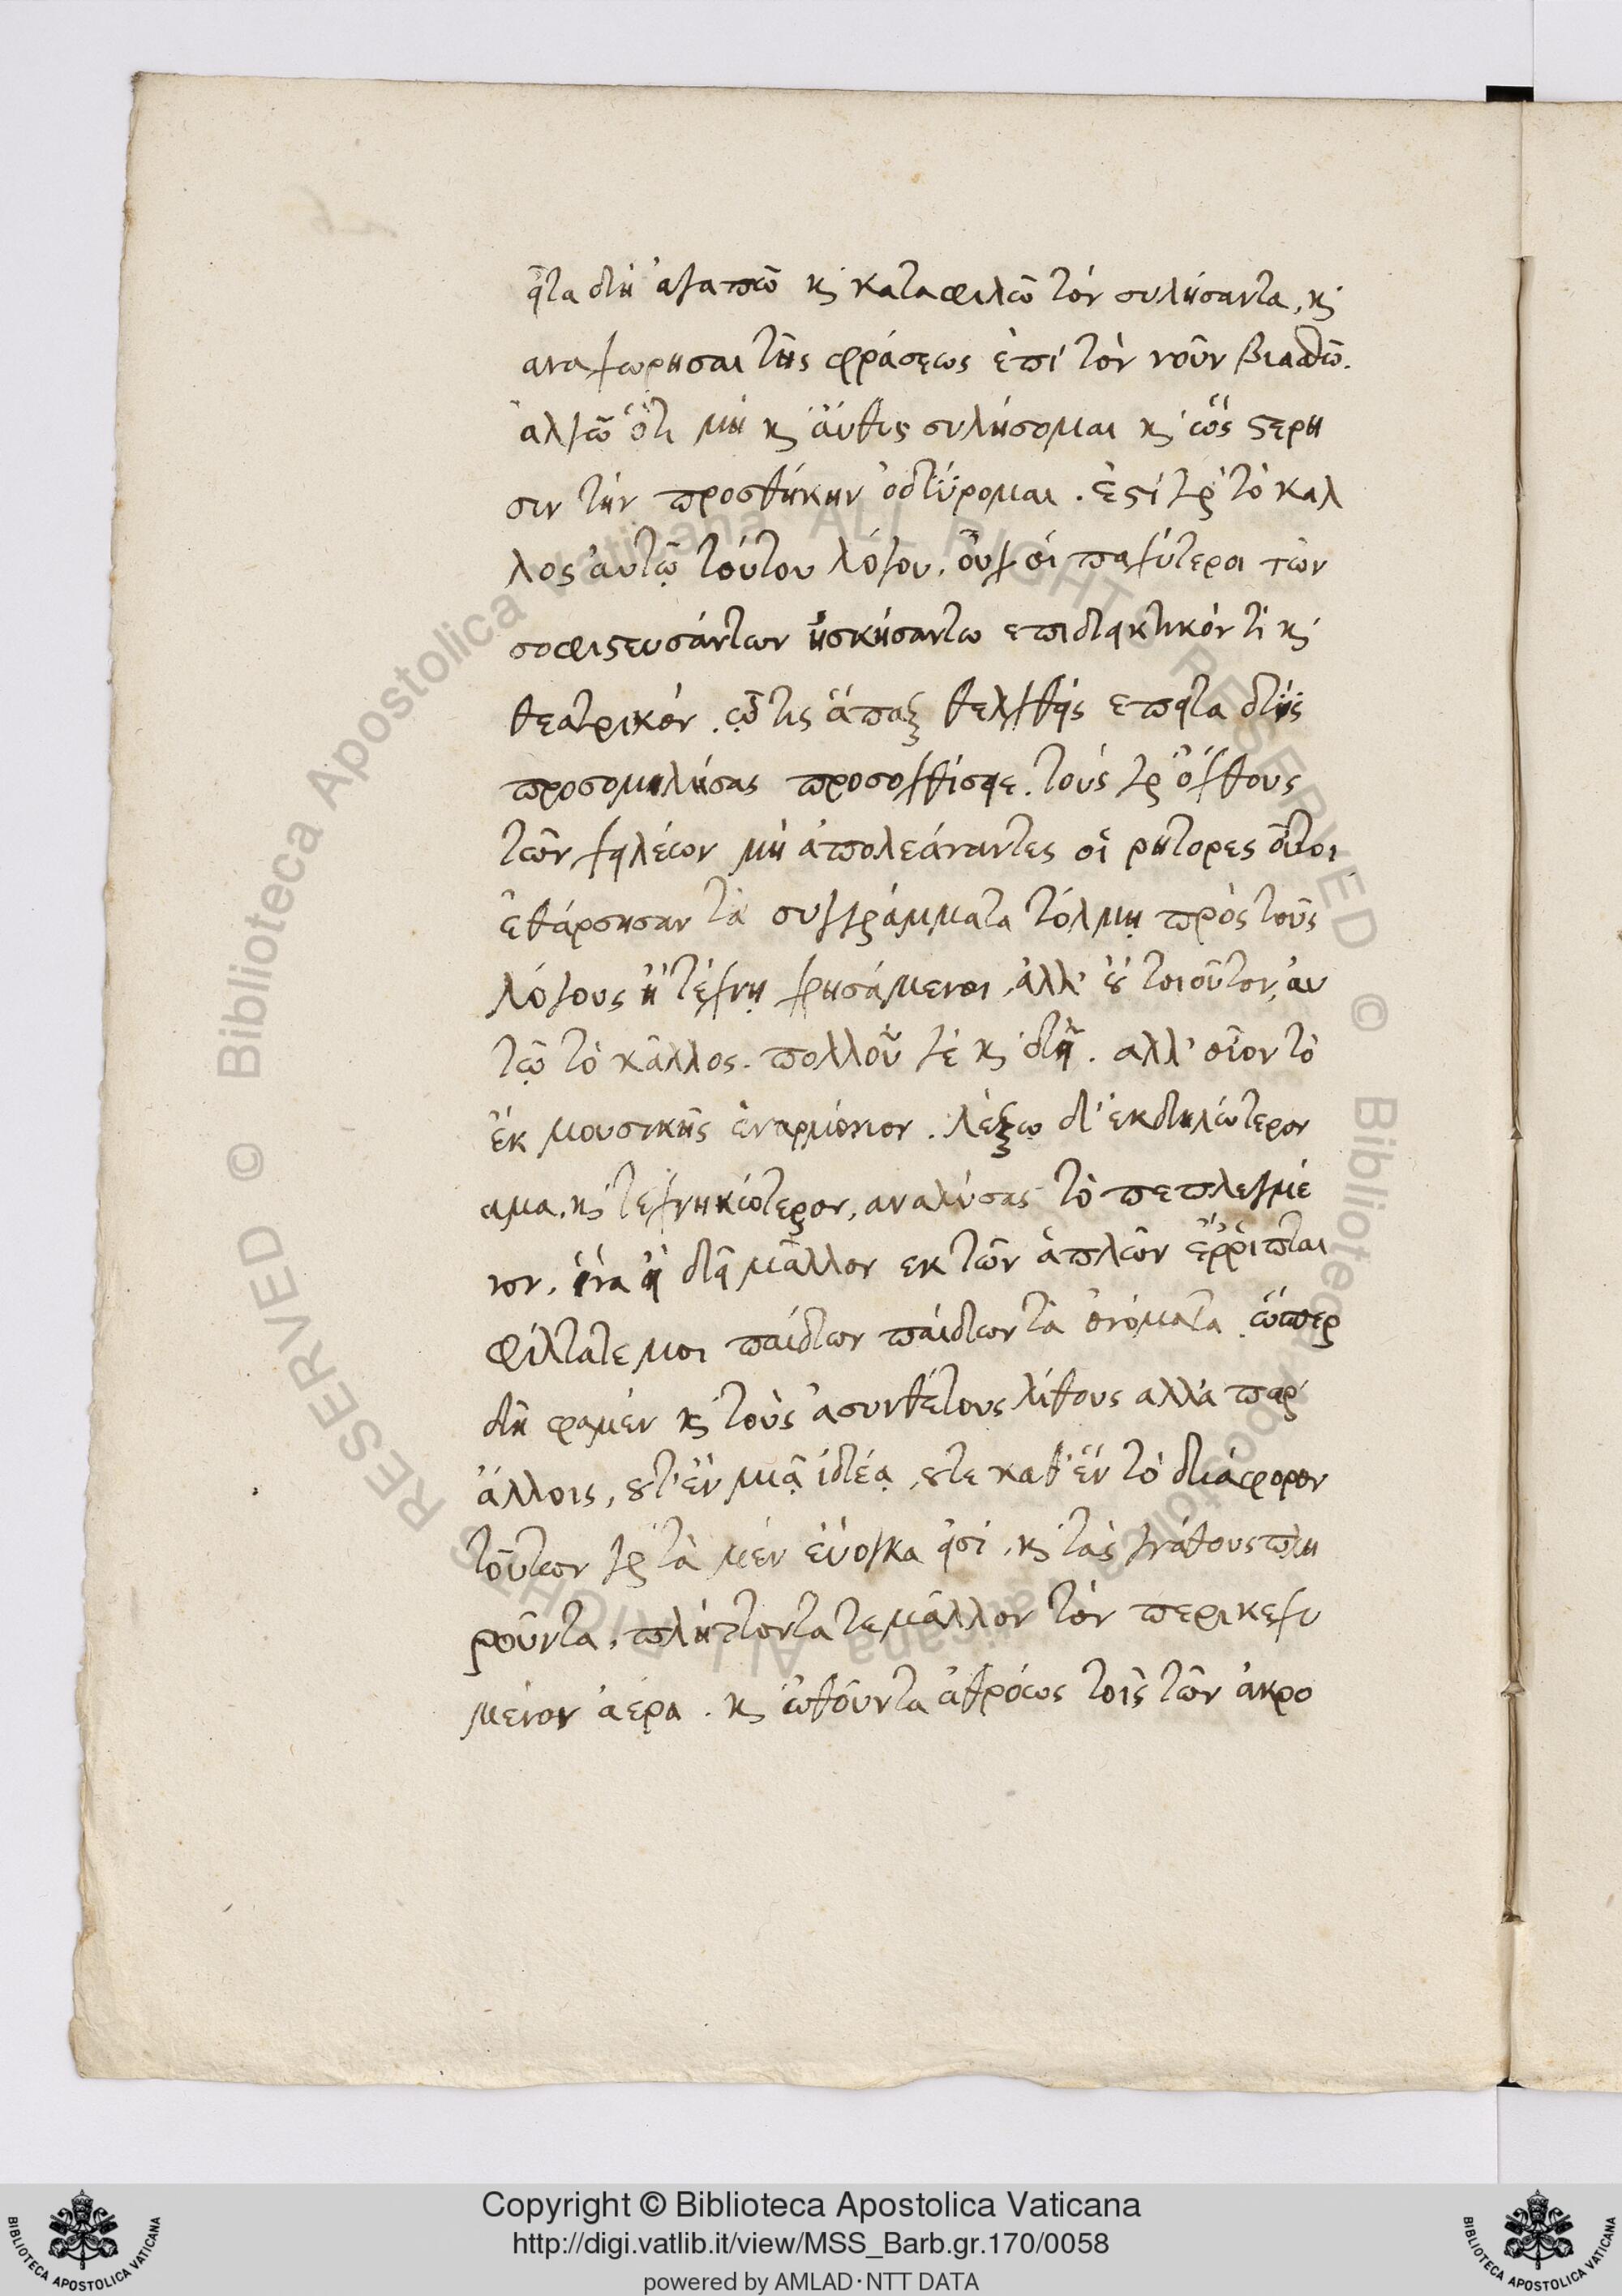 εῖτα δὴ ἀγαπῶ κ καταφιλῶ τὸν συλήσαντα, κ
αναχωρησαι τῆς φράσεως ἐπὶ τὸν νοῦν βιαζω.
ἀλγῶ ὅτι μὴ κ ἄυθις συλήσομαι κ ὡς ϛερη
σιν τὴν προσθήκην ὀδύρομαι. ἐϛὶ γρ τὸ καλ
λος ἀυτῷ τούτου λόγου, οὐχ οἱ παχύτεροι τῶν
σοφιϛευσάντων ἠσκήσαντω επιδεικτικόν τὶ κ
θεατρικόν. ᾧ τις ἅπαξ θελχθεὶς επειτα δὶς
προσομιλήσας προσοχθίσειε. τοὺς γρ ὄχθους
τῶν χειλέων μὴ ἀπολεάναντες οἱ ρητορες οὗτοι
ἐθάρσησαν τὰ συγγράμματα τόλμῃ πρὸς τοὺς
λόγους ἢ τέχνῃ χρησάμενοι, ἀλλ' ȣ τοιοῦτον, ἀυ
τῷ τὸ κάλλος. πολλοῦ γε κ δεῖ. αλλ' οἷον τὸ
ἐκ μουσικῆς ἐναρμόνιον. λέξω δ' ἐκδηλώτερον
αμα. κ τεχνηκώτερον, αναλύσας τὸ πεπλεγμέ
νον, ἵνα ᾖ δεῖ μᾶλλον εκ τῶν ἁπλῶν ἔῤῥιπται
φίλτατε μοι παίδων παίδων τὰ ὀνόματα, ὥσπερ
δή φαμεν κ τοὺς ἀσυνθέτους λίθους αλλὰ παρ'
ἄλλοις, ȣτ' ἐν μιᾷ ἰδέᾳ, ȣτε καθ' ἓν τὸ διάφορον
τούτων γρ τὰ μὲν ἐύογκα εἰσὶ, κ τὰς γνάθους πλη
ροῦντα, πλήττοντα τε μᾶλλον τὸν περικεχυ
μένον ἀέρα. κ ὠθοῦντα ἀθρόως τοῖς τῶν ἀκρο
Copyright © Biblioteca Apostolica Vaticana
http://digi.vatlib.it/view/MSS_Barb.gr.170/0058
powered by AMLAD·NTT DATA